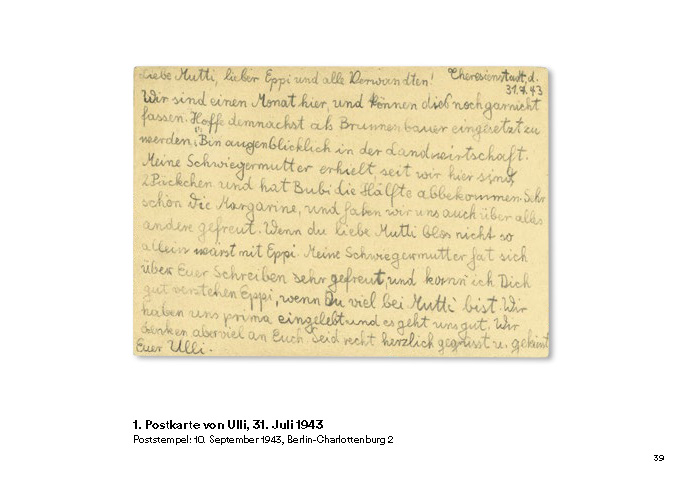 Liebe Mutti, lieber Eppi und alle Verwandten! Theresienstadt, d.
31.7.43
Wir sind einen Monat hier, und können dies noch garnicht
fassen. Hoffe demnächst als Brunnenbauer eingesetzt zu
werden. Bin augenblicklich in der Landwirtschaft.
Meine Schwiegermutter erhielt, seit wir hier sind,
2 Päckchen und hat Bubi die Hälfte abbekommen. Sehr
schön die Margarine, und haben wir uns auch über alles
andere gefreut. Wenn du liebe Mutti blos nicht so
allein wärst mit Eppi. Meine Schwiegermutter hat sich
über Euer Schreiben sehr gefreut, und kann ich Dich
gut verstehen Eppi, wenn Du viel bei Mutti bist. Wir
haben uns prima eingelebt und es geht uns gut. Wir
denken aber viel an Euch. Seid recht herzlich gegrüsst u. geküsst
Euer Ulli.
1. Postkarte von Ulli, 31. Juli 1943
Poststempel: 10. September 1943, Berlin-Charlottenburg 2
39